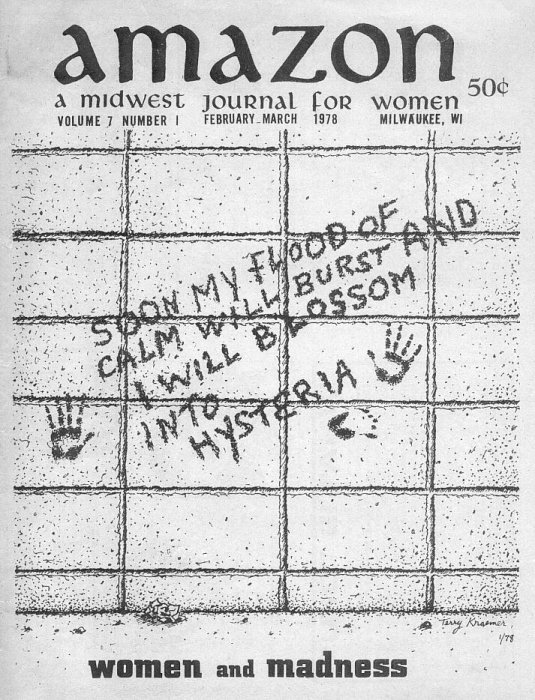 amazon
50¢
a midwest journal for women
VOLUME 7 NUMBER 1 FEBRUARY-MARCH 1978 MILWAUKEE, WI
SOON MY FLOOD OF
CALM WILL BURST AND
I WILL BLOSSOM
INTO
HYSTERIA
Terry Kraemer
1/78
women and madness